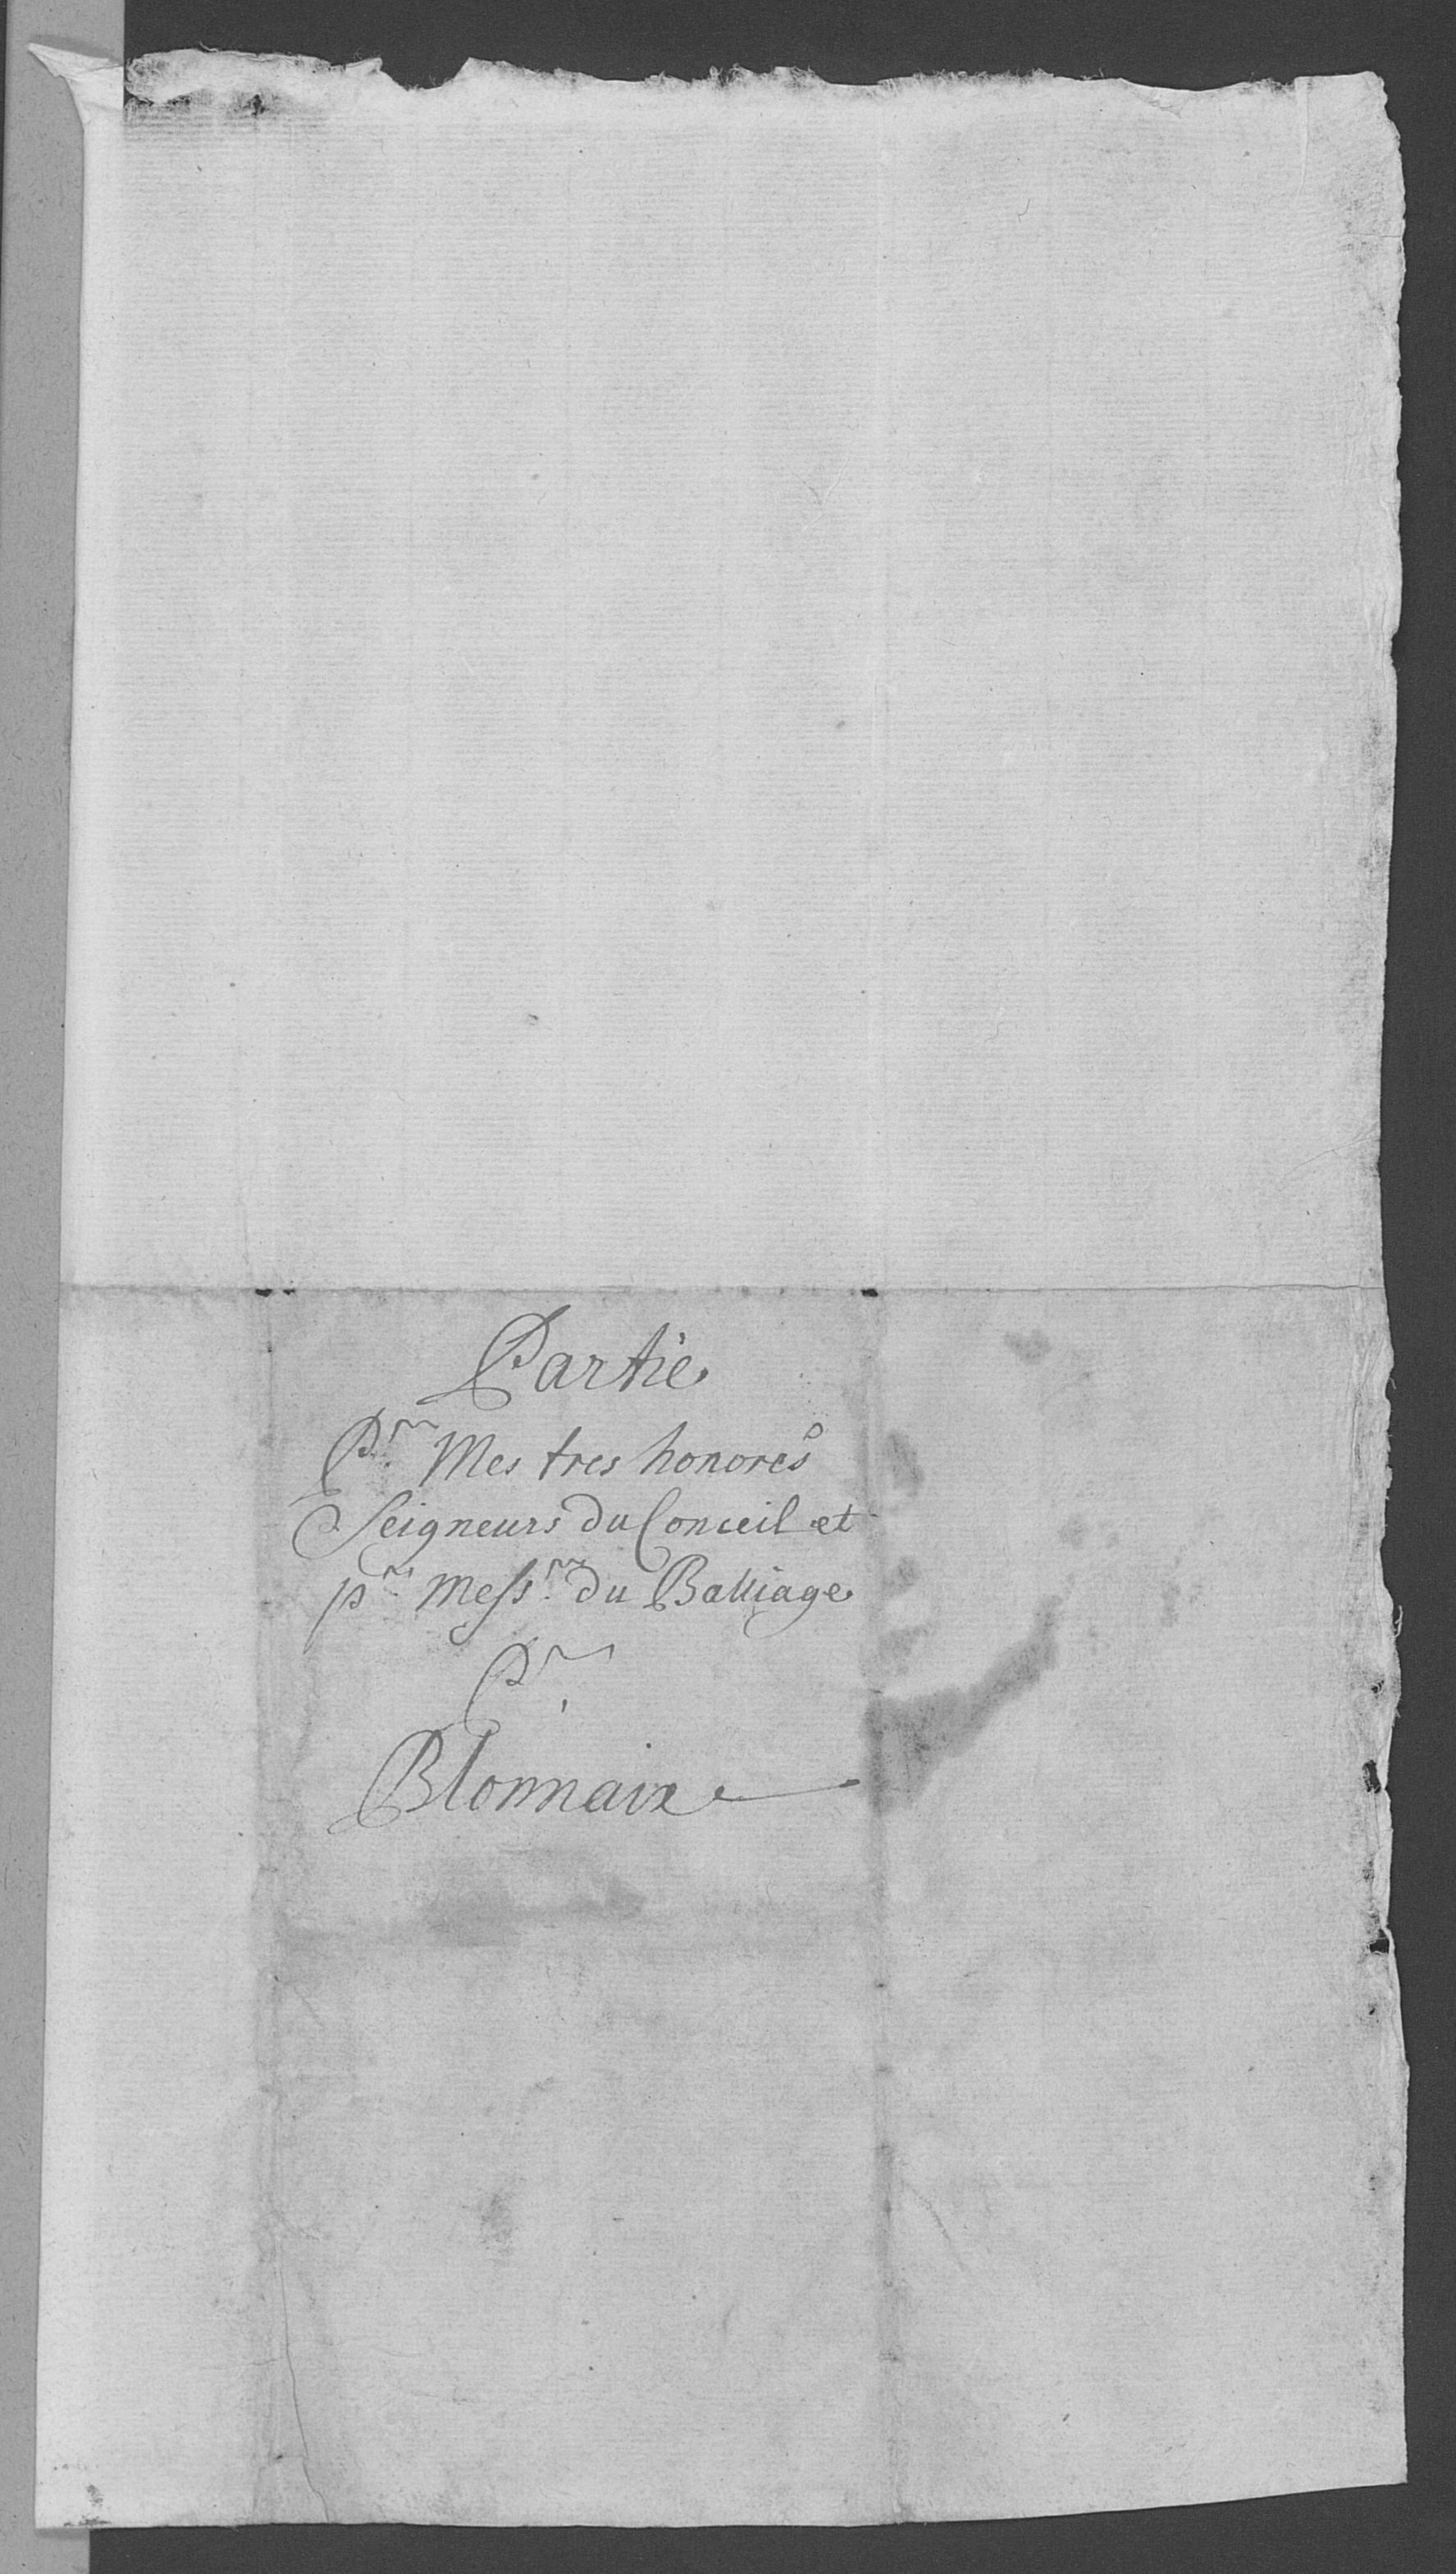 Partie
Pr. Mes tres honorés
Seigneurs du Conceil et
pr. Messrs. du Balliage
Pr.
Blonnaix